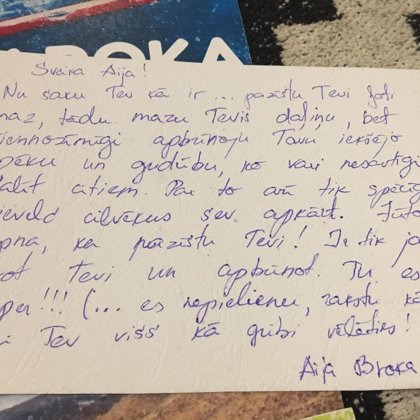 ROKA
Sveika Aija!
Nu saku Tev kā ir ... pazīstu Tevi ļoti
maz, tādu mazu Tevis daļiņu, bet
viennozīmīgi apbrīnoju Tavu iekšējo
spēku un gudrību, ko vari nesavtīgi
dalīt citiem. Par to arī tik spēcīgi
pievelc cilvēkus sev apkārt.
ka pazīstu Tevi! Ir tik
Tevi un apbrīnot. Tu es
per!!! (... es nepielienu, rakstu kā
i Tev viss kā gribi
Aija Broka